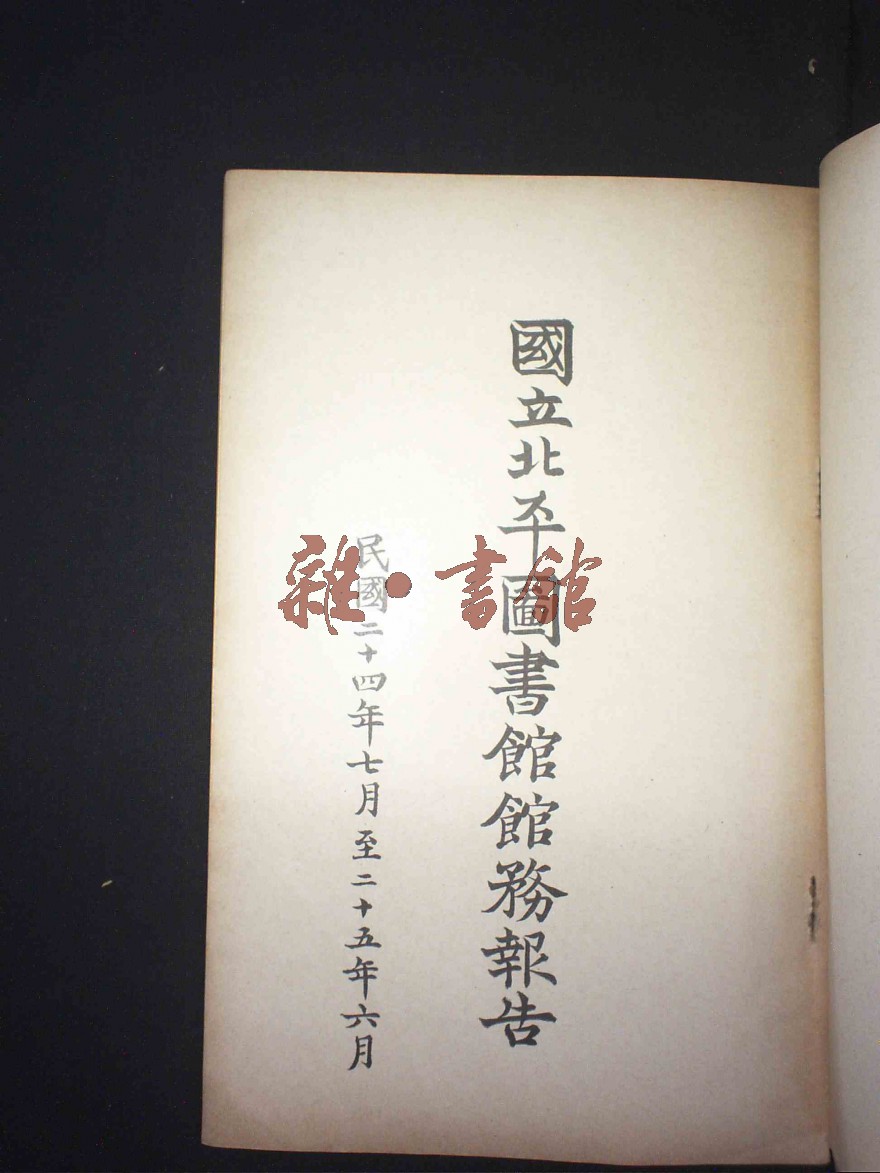 國立北平圖書館館務報告
民國二十四年七月至二十五年六月
雜·書館